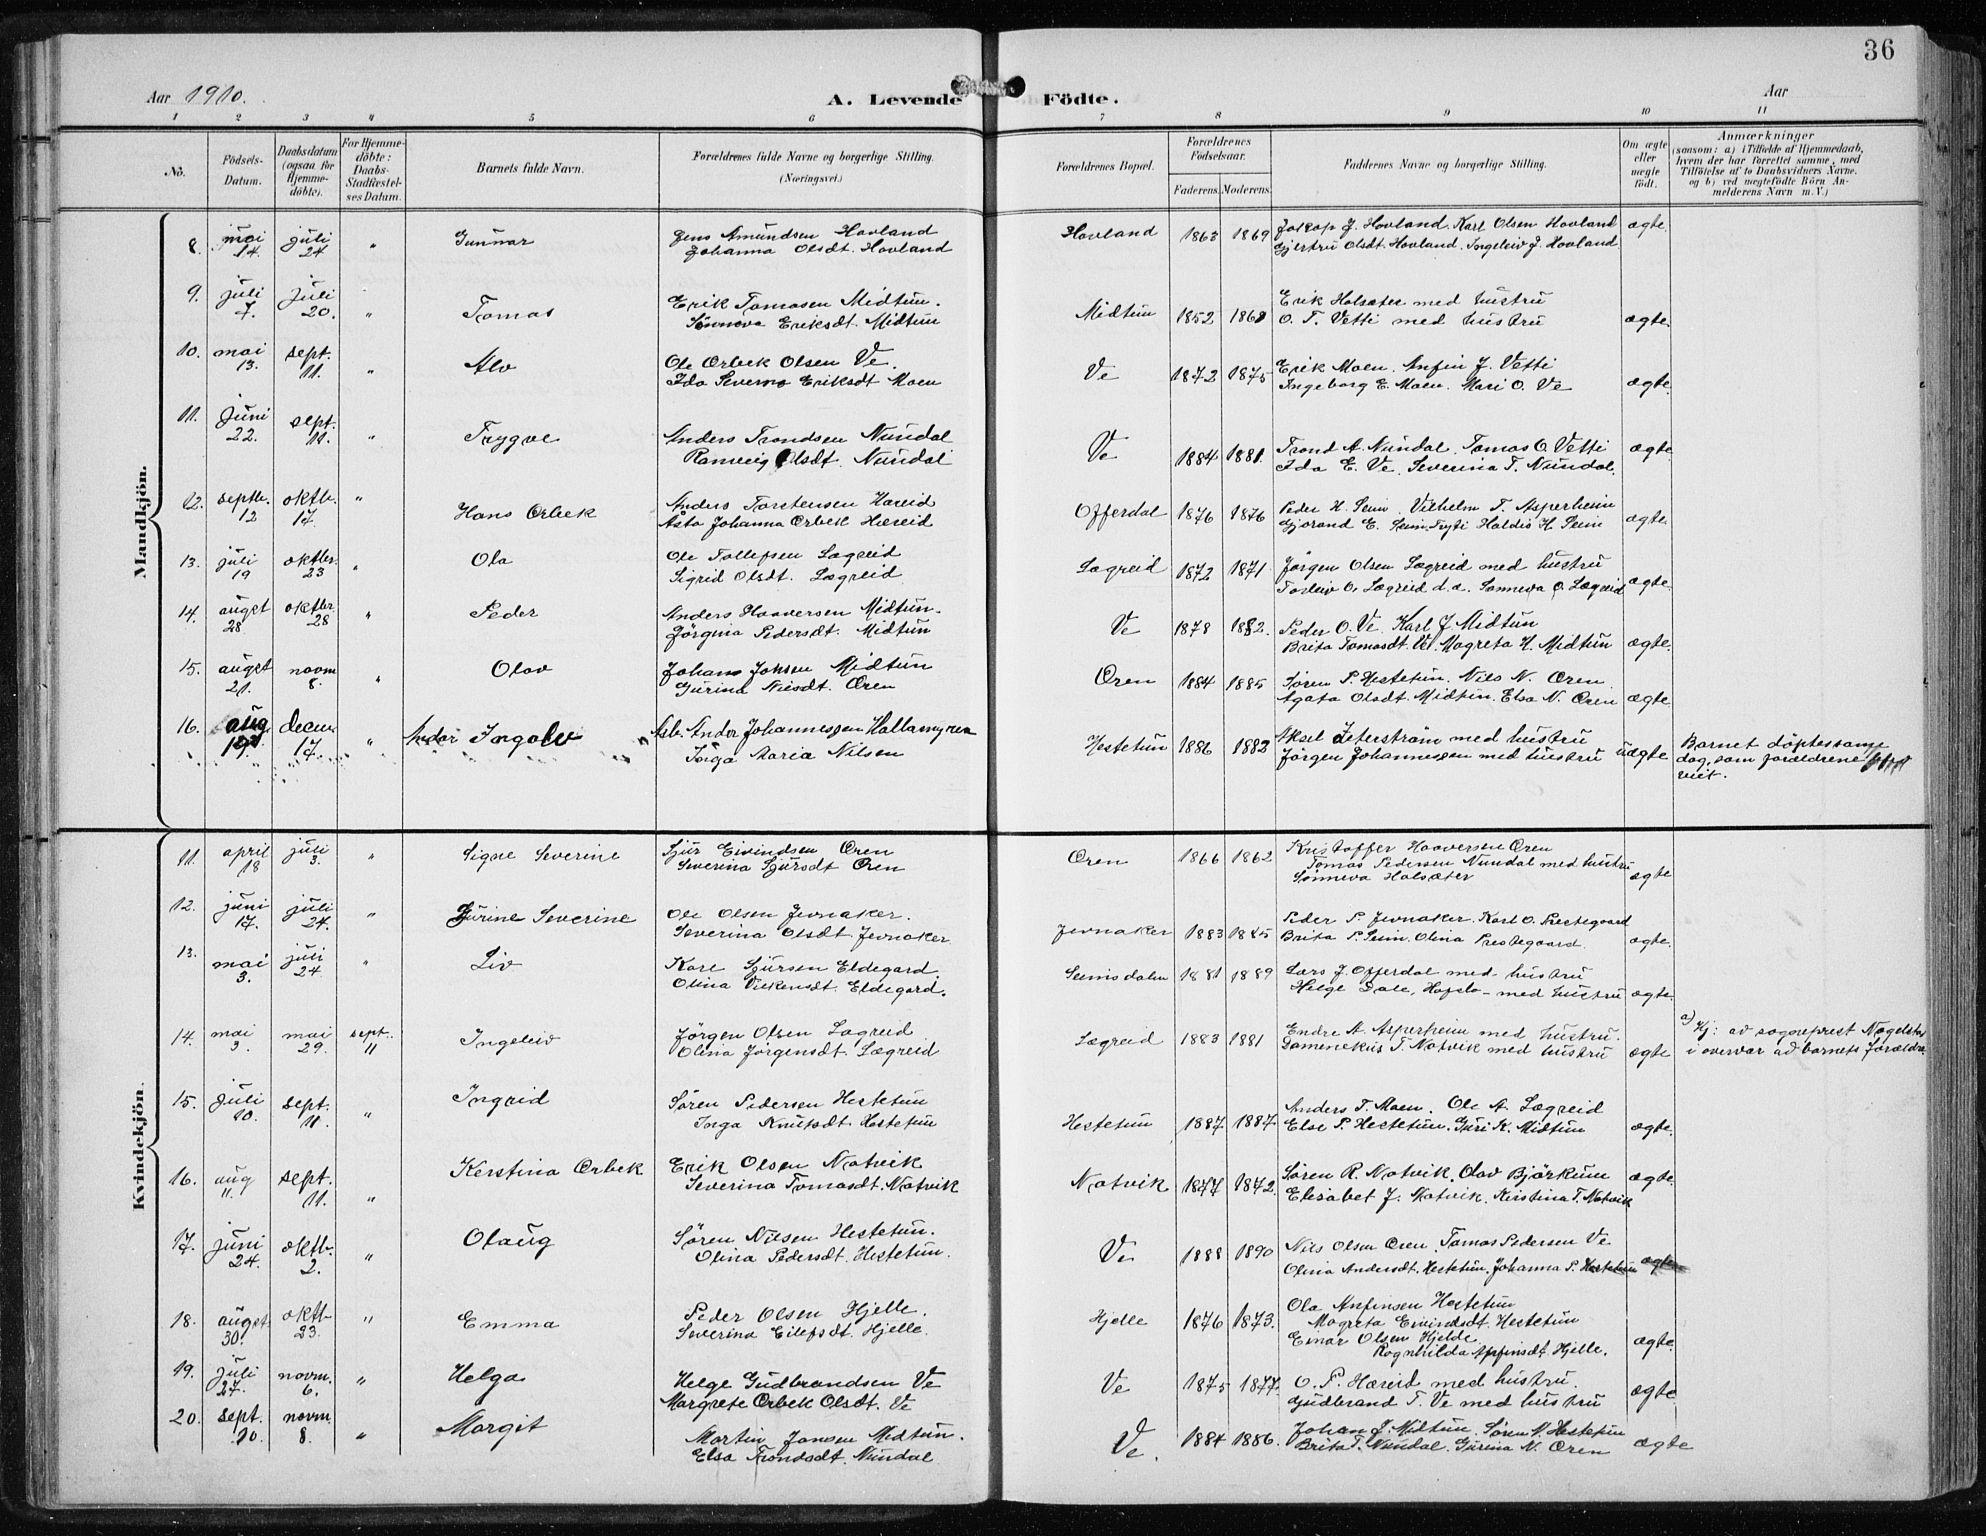 36
Aar 1910.
A. Levende Födte.
Aar
1 2 3 4 5 6 7 8 9 10 11
No.
Födsels-Datum.
Daabsdatum (ogsaa för Hjemme-döbte).
For Hjemme-döbte: Daabs-Stadfæstel-ses Datum.
Barnets fulde Navn.
Forældrenes fulde Navne og borgerlige Stilling. (Næringsvei.)
Forældrenes Bopæl.
Forældrenes Födselsaar.
Faderens. Moderens.
Faddernes Navne og borgerlige Stilling.
Om ægte eller uægte födt.
Anmærkninger
(saasom: a) i Tilfælde af Hjemmedaab, hvem der har forrettet samme, med Tilföielse af to Daabsvidners Navne. og b) ved uægtefödte Börn An-melderens Navn m. V.)
Mandkjön.
8. mai 14. juli 24 " Gunnar Jens Amundsen Hovland Hovland 1863 1869 Jakop J. Hovland. Karl Olsen Hovland ægte.
Johanna Olsdt. Hovland Gjertru Olsdt. Hovland. Ingeleiv J. Hovland
9. juli 7. Juli 20. " Tomas Erik Tomasen Midtun. Midtun 1852 1868 Erik Holsæter med hustru ægte.
Sønneva Eriksdt. Midtun O. T. Vetti med hustru
10. mai 13. sept. 11. " Alv Ole Orbek Olsen Ve. Ve 1872 1875 Erik Moen. Anfin J. Vetti ægte.
Ida Severina Eriksdt Moen Ingeborg E. Moen. Mari O. Ve
11. Juni 22. sept. 11. " Trygve Anders Trondsen Nundal Ve 1884 1881. Trond A. Nundal. Tomas O. Vetti ægte
Ranveig Olsdt. Nundal Ida E. Ve. Severina T. Nundal.
12. septb. 12 oktb. 17. " Hans Orbek Anders Torstensen Hæreid Offerdal 1876 1876 Peder H. Seim. Vilhelm T. Asperheim ægte.
Åsta Johanna Orbek Hæreid Gjørand E. Seim. Haldis H. Seim
13. juli 19 oktbr. 23 " Ola Ole Tollefsen Lægreid Lægreid 1872 1871 Jörgen Olsen Lægreid med hustru ægte.
Sigrid Olsdt. Lægreid Torleiv O. Lægreid d.æ. Sønneva O. Lægreid
14. augst 28 oktbr. 28 " Peder Anders Haaversen Midtun. Ve 1878 1882. Peder O. Ve. Karl J. Midtun ægte.
Jörgina Pedersdt. Midtun Brita Tomasdt. Ve. Magreta H. Midtun
15. augst 21. novm 8. " Olav Johans Johsen Midtun Øren 1884 1885 Søren P. Hestetun. Nils N. Øren ægte
Gurina Nilsdt. Øren Agata Olsdt. Midtun. Elsa N. Øren
16. aug 19. decem 17. " Andor Ingolv Arb. Ander Johannessen Hallamyren Hestetun 1886 1882 Aksel Zeterström med hustru uægte Barnet døptes samme
Inga Maria Nilsen Jörgen Johannessen med hustru dag, som forældrene blev viet.
Kvindekjön.
11. april 18 juli 3. " Signe Severine Sjur Eivindsen Øren Øren 1866 1862 Kristoffer Haaversen Øren
Severina Sjursdt Øren Tomas Pedersen Nundal med hustru
Sønneva Holsæter ægte
12. juni 17. juli 24. " Jurine Severine Ole Olsen Jevnaker. Jevnaker 1883 1885 Peder P. Jevnaker. Karl O. Prestegaard ægte.
Severina Olsdt. Jevnaker Brita P. Seim. Olina Prestegaard.
13. mai 3. juli 24 " Liv Kare Sjursen Eldegard. Seimsdalen 1881 1889 Lars J. Offerdal med hustru
Olina Vilkensdt. Eldegard. Helge Dale, Hafslo - med hustru ægte.
14. mai 3. mai 29. sept. 11 Ingeleiv Jörgen Olsen Lægreid Lægreid 1883 1881 Endre A. Asperheim med hustru. ægte a) Hj: av sogneprest Nagelstad
Olina Jørgensdt. Lægreid Damenekus T. Natvik med hustru i overvær av barnets forældre
15. juli 10. sept. 11. " Ingrid Søren Pedersen Hestetun Hestetun 1887 1887 Anders T. Moen. Ole A. Lægreid ægte.
Inga Knutsdt. Hestetun Else P. Hestetun. Guri K. Midtun
16. aug " sept. 11. " Kerstina Orbek Erik Olsen Natvik Natvik 1877 1872. Søren R. Natvik. Olav Björkum ægte.
Severina Tomasdt. Natvik Elisabet J. Natvik. Kerstina T. Natvik
17. juni 24. oktb. 2. " Olaug Søren Nilsen Hestetun. Ve 1888 1890 Nils Olsen Øren. Tomas Pedersen Ve ægte
Olina Pedersdt. Hestetun. Olina Andersdt. Hestetun. Johanna P. Hestetun
18. augst 30. oktb 23. " Emma Peder Olsen Hjelle. Hjelle 1876 1873. Ola Anfinsen Hestetun
Severina Eilefsdt. Hjelle. Magreta Eivindsdt. Hestetun
Einar Olsen Hjelde
Ragnhilda Anfinsdt. Hjelle. ægte.
19. juli 27. novm. 6. " Helga Helge Gudbrandsen Ve Ve 1875 1877. O. P. Hæreid med hustru. ægte
Margrete Orbek Olsdt. Ve Gudbrand T. Ve med hustru
20. sept. 10. novm. 8. " Margit Martin Jonsen Midtun. Ve. 1884 1886. Johan J. Midtun. Søren N. Hestetun ægte
Elsa Trondsdt. Nundal Brita T. Nundal. Gurina N. Øren